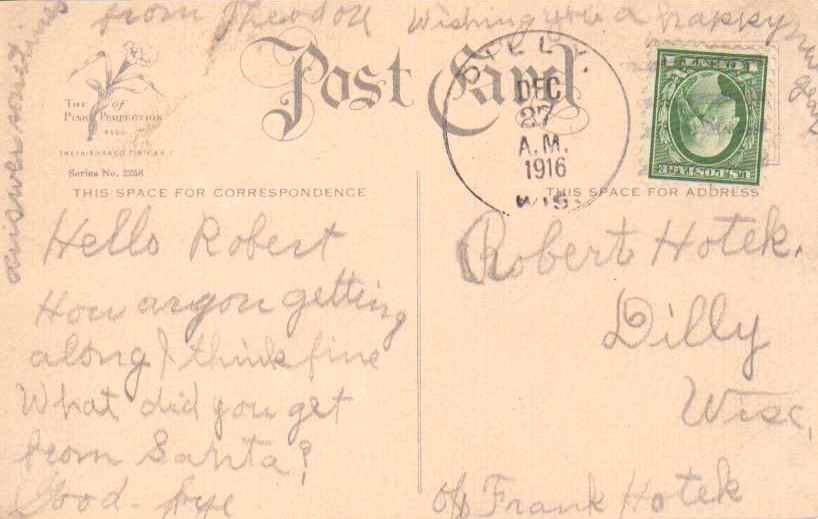 from Theodore Wishing you a happy new
year
answer sometimes
Post Card
THE of
PINK PERFECTION
Series No. 2258
THIS SPACE FOR CORRESPONDENCE
THIS SPACE FOR ADDRESS
DEC
27
A.M.
1916
WIS.
U.S. POSTAGE
Hello Robert
How are you getting
along I think fine
What did you get
from Santa?
Good-bye
Robert Hotek.
Dilly
Wisc,
c/o Frank Hotek